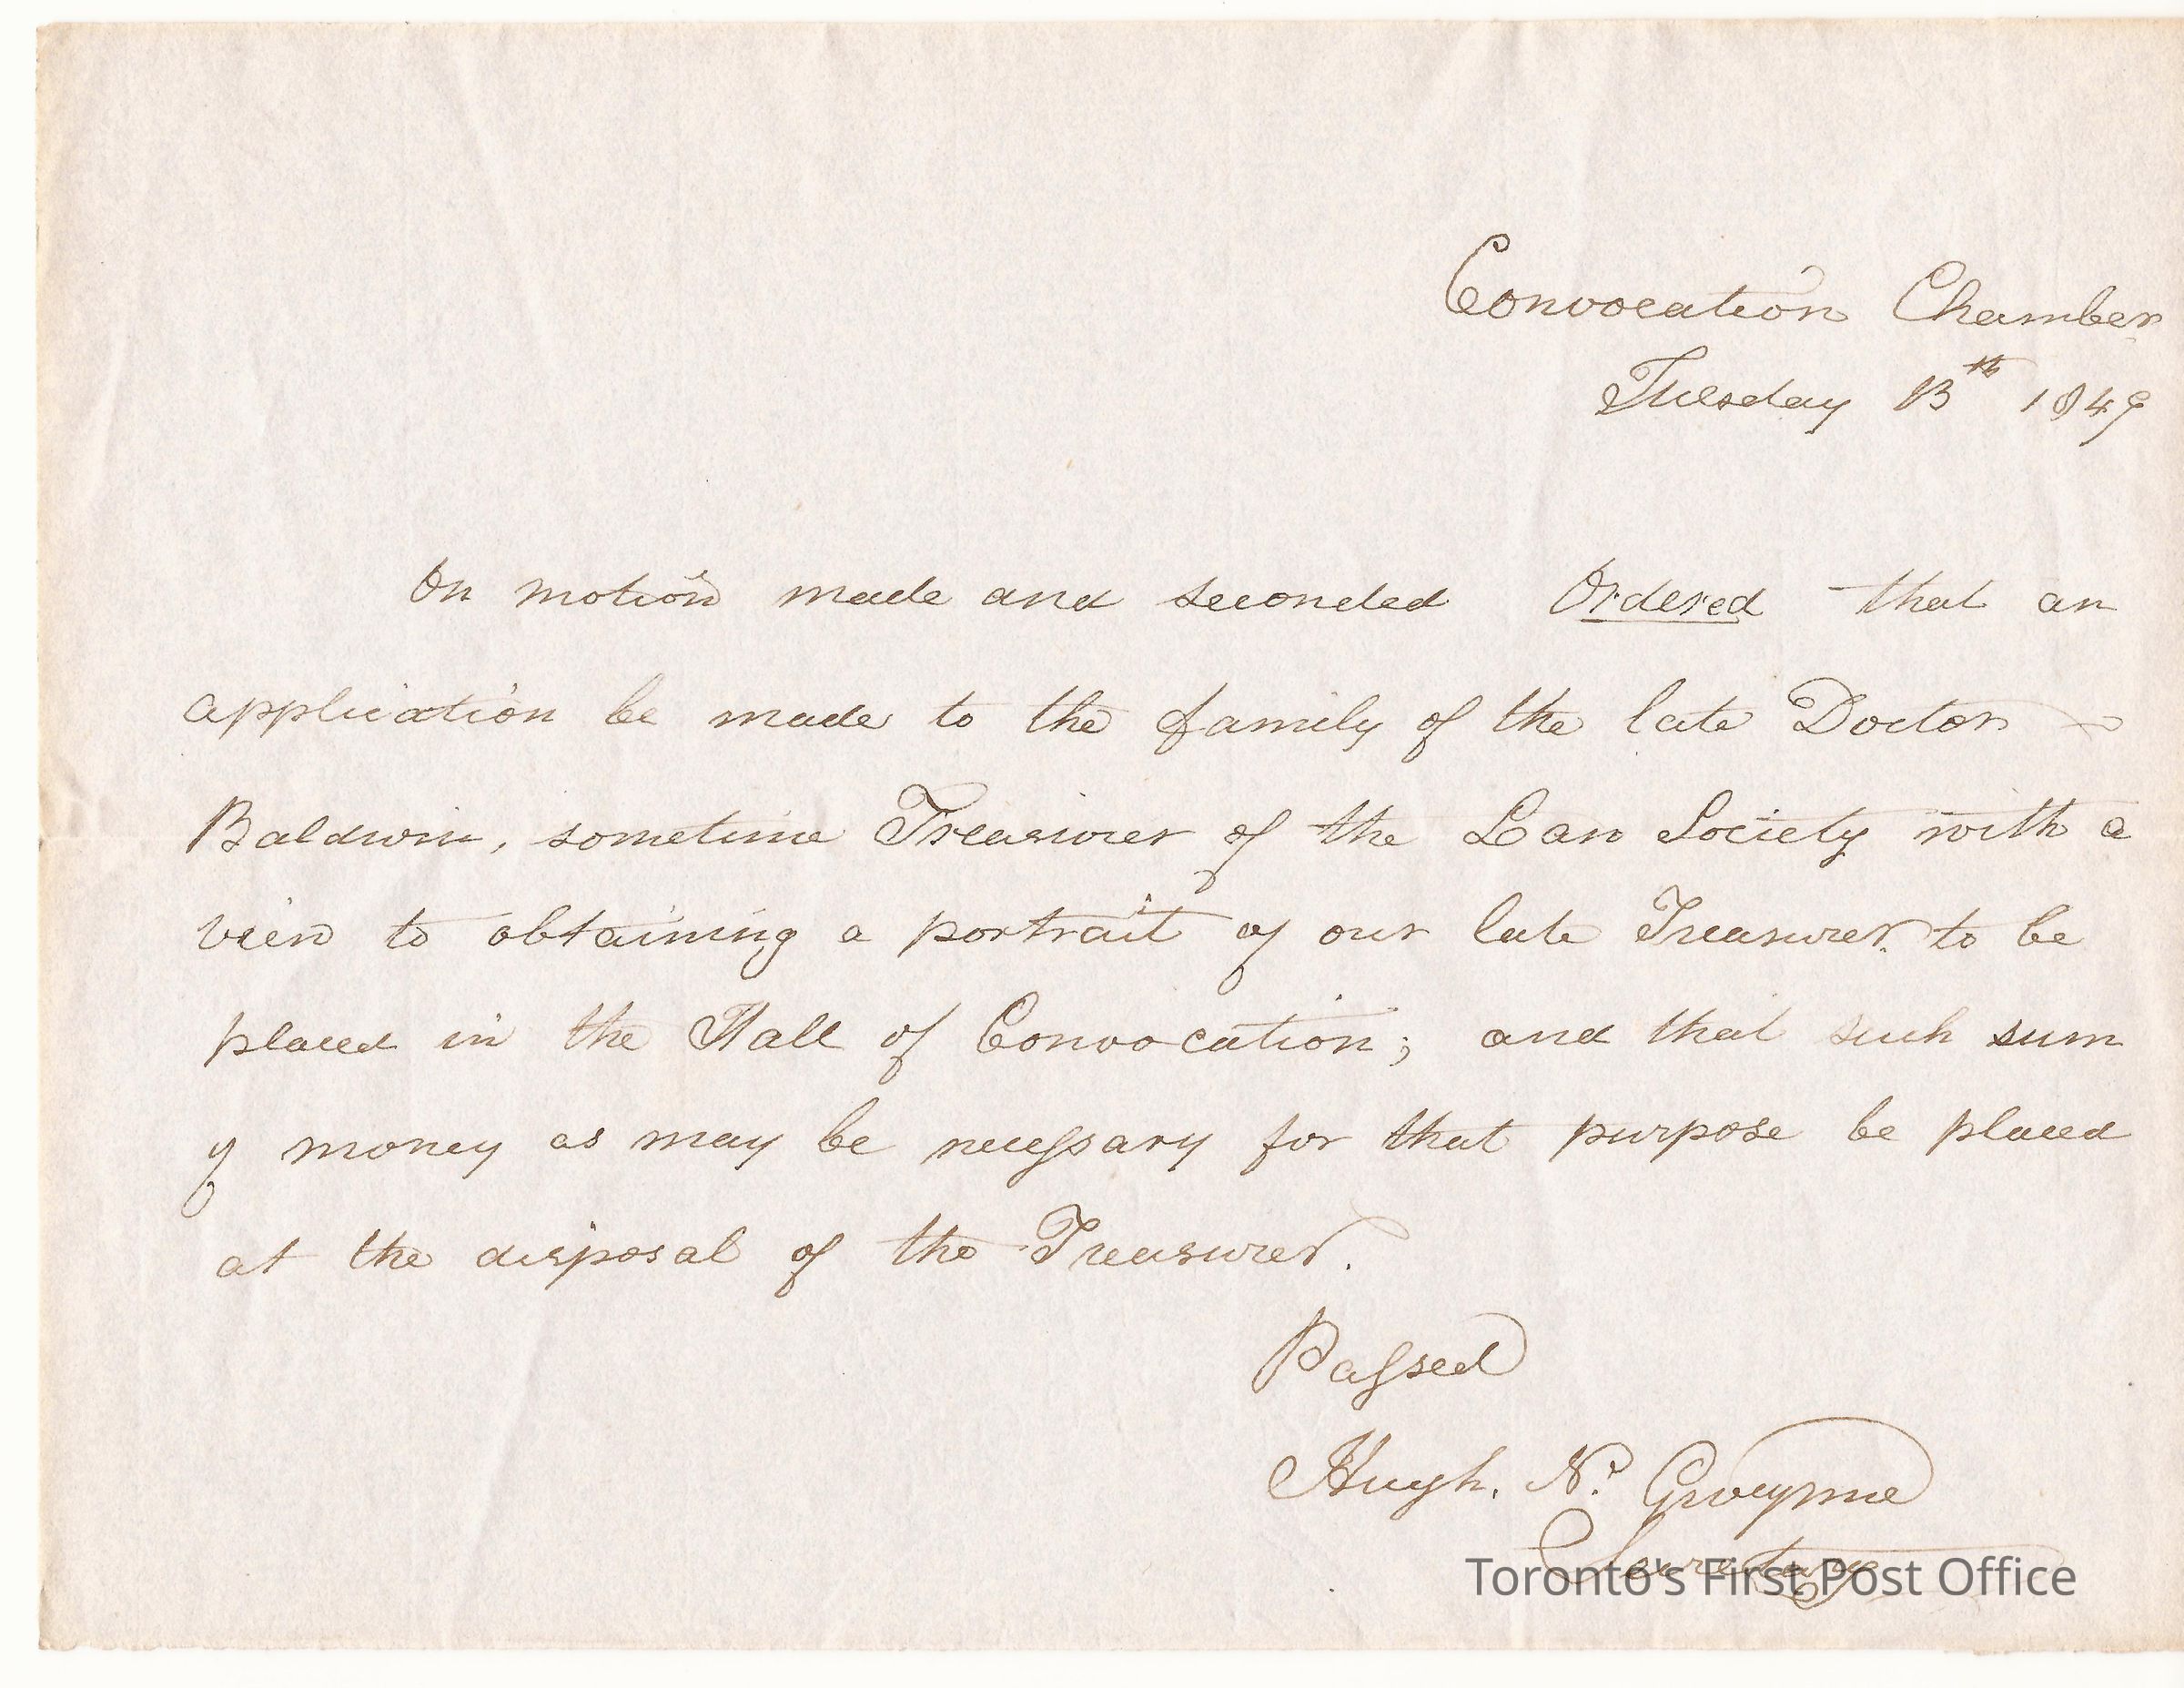 Convocation Chamber
Tuesday 13th 1849
On motion made and seconded Ordered that an
application be made to the family of the late Doctor
Baldwin, sometime Treasurer of the Law Society with a
view to obtaining a portrait of our late Treasurer to be
placed in the Hall of Convocation; and that such sum
of money as may be necessary for that purpose be placed
at the disposal of the Treasurer.
Passed
Hugh. N. Gwynne
Secretary
Toronto's First Post Office